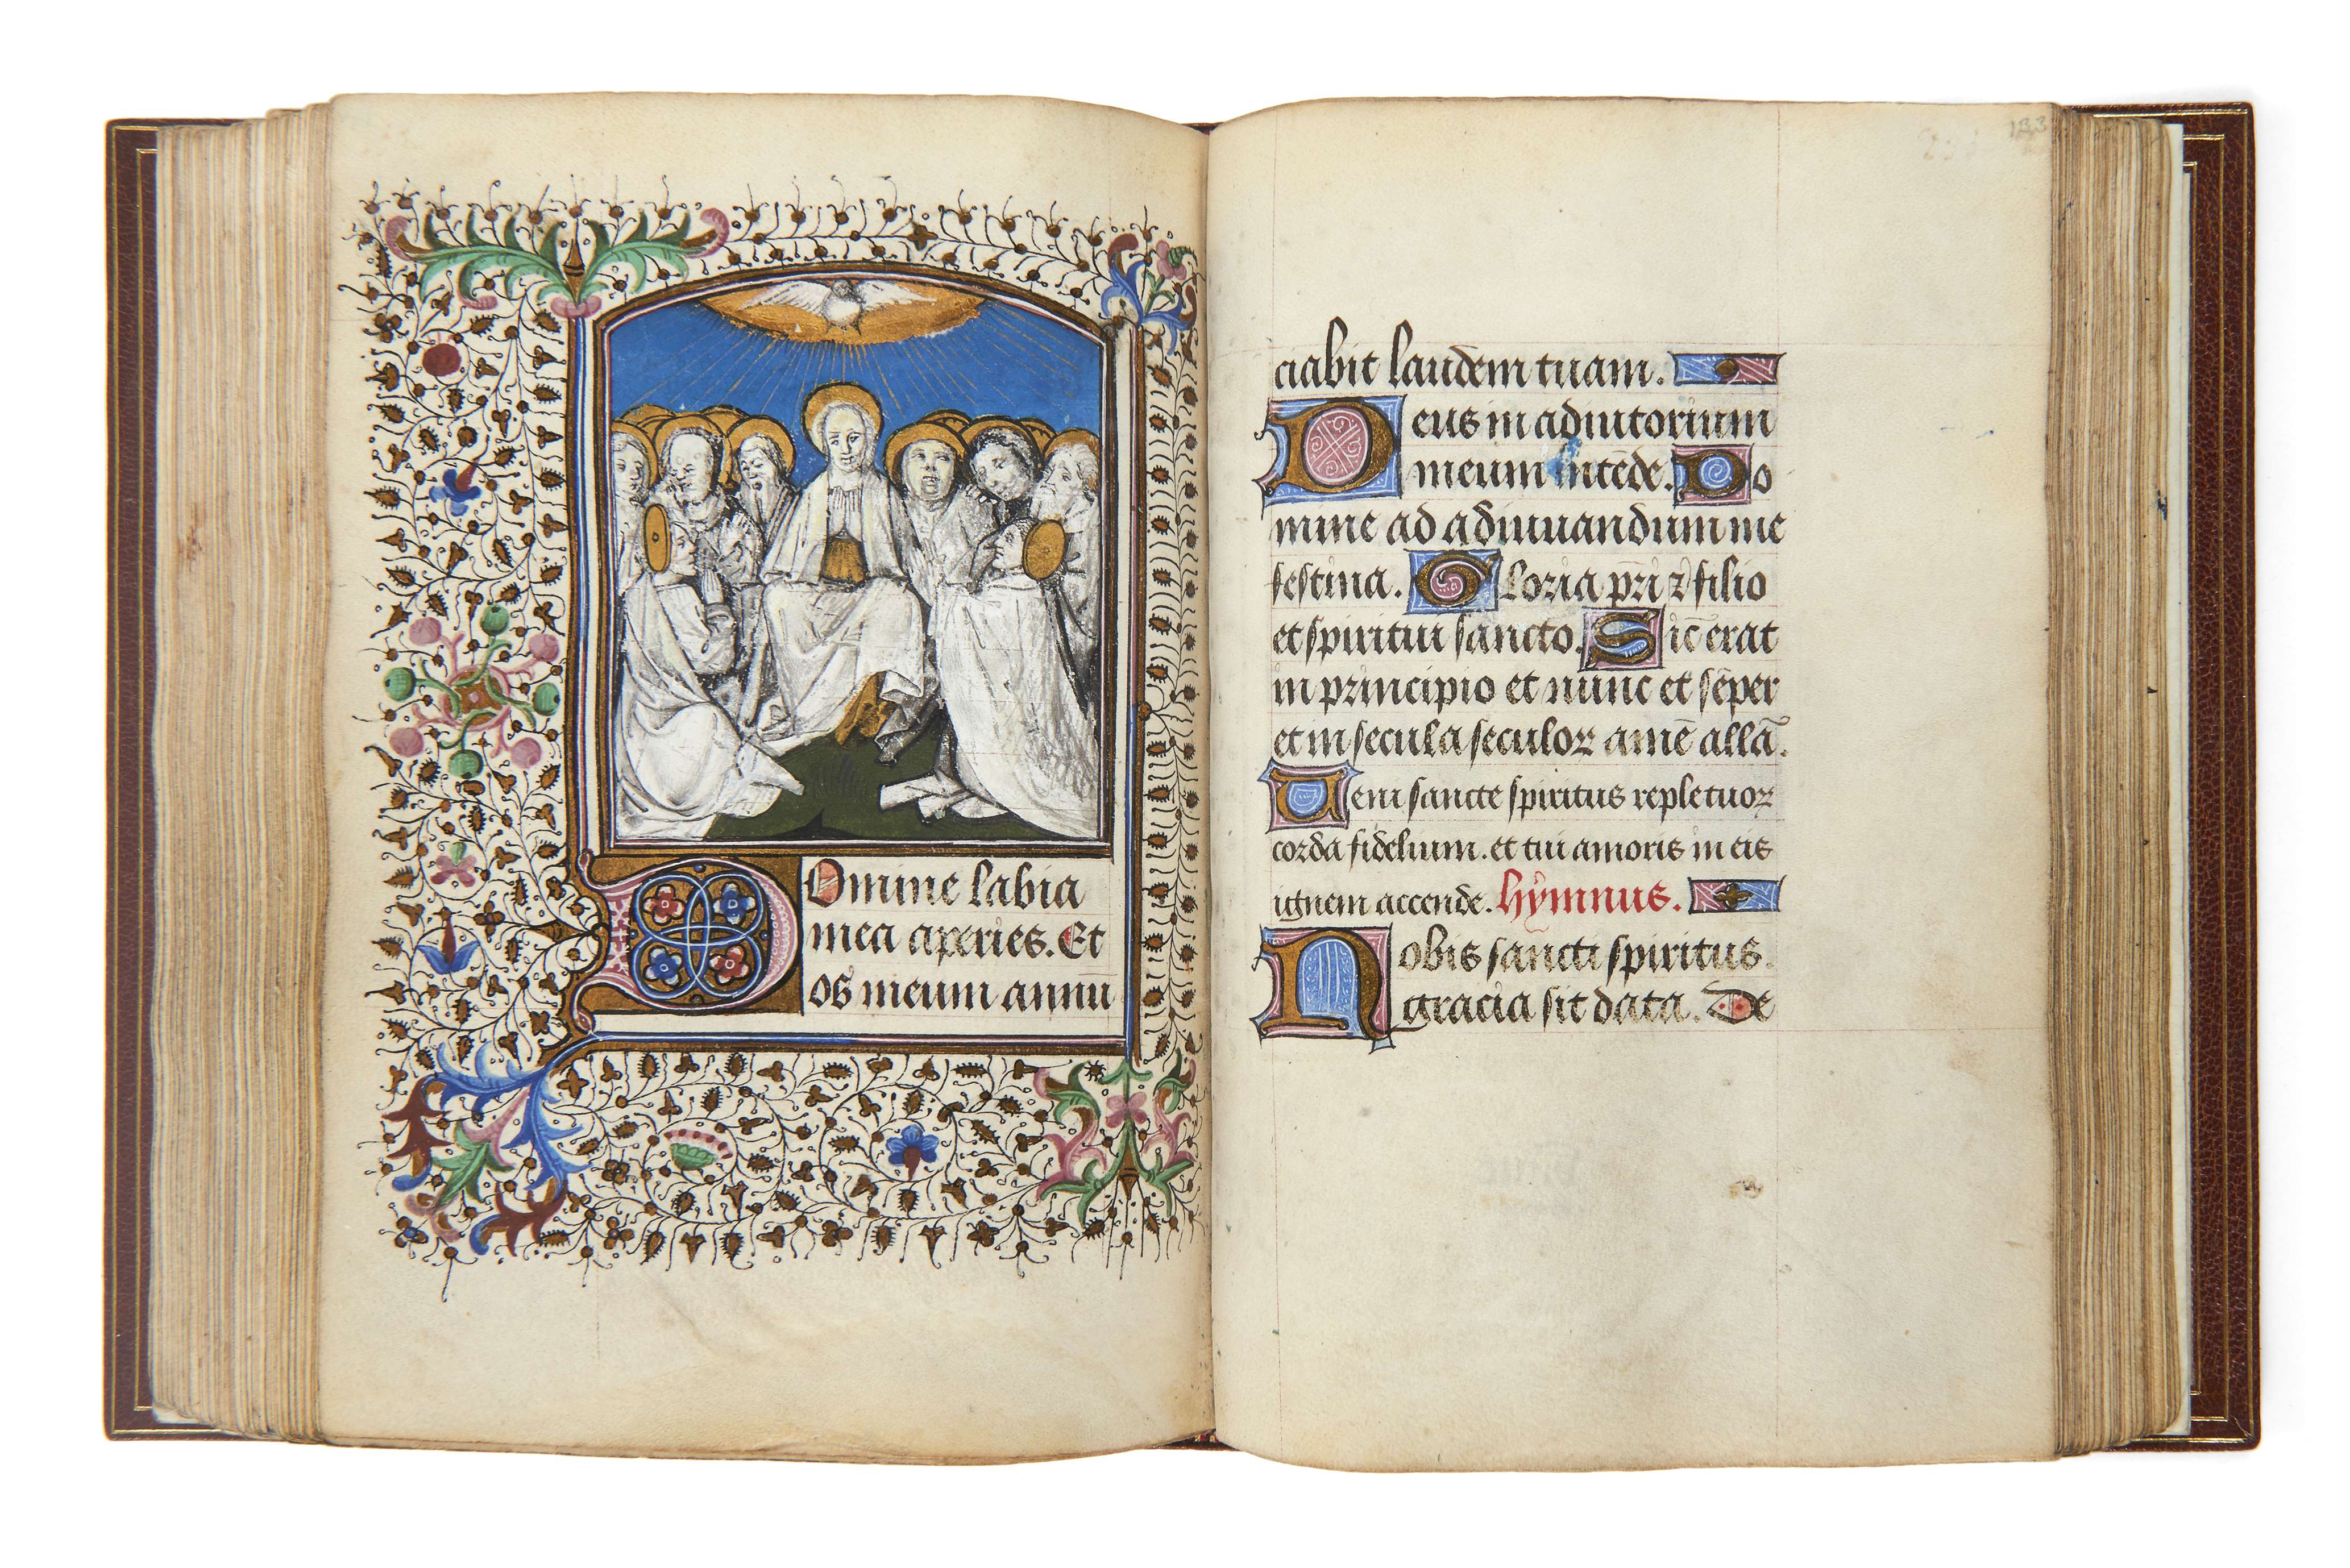 Domine labia
mea aperies. Et
os meum annu
133
ciabit laudem tuam.
Deus in adiutorium
meum intẽde. Do
mine ad adiuuandum me
festina. Gloria pr̃i ⁊ filio
et spiritui sancto. Sic̃ erat
in principio et nũnc et sẽper
et in secula seculoꝝ amẽ allã.
Ueni sancte spiritus reple tuoꝝ
corda fidelium. et tui amoris in eis
ignem accende. hẏmnus.
Nobis sancti spiritus.
gracia sit data. De